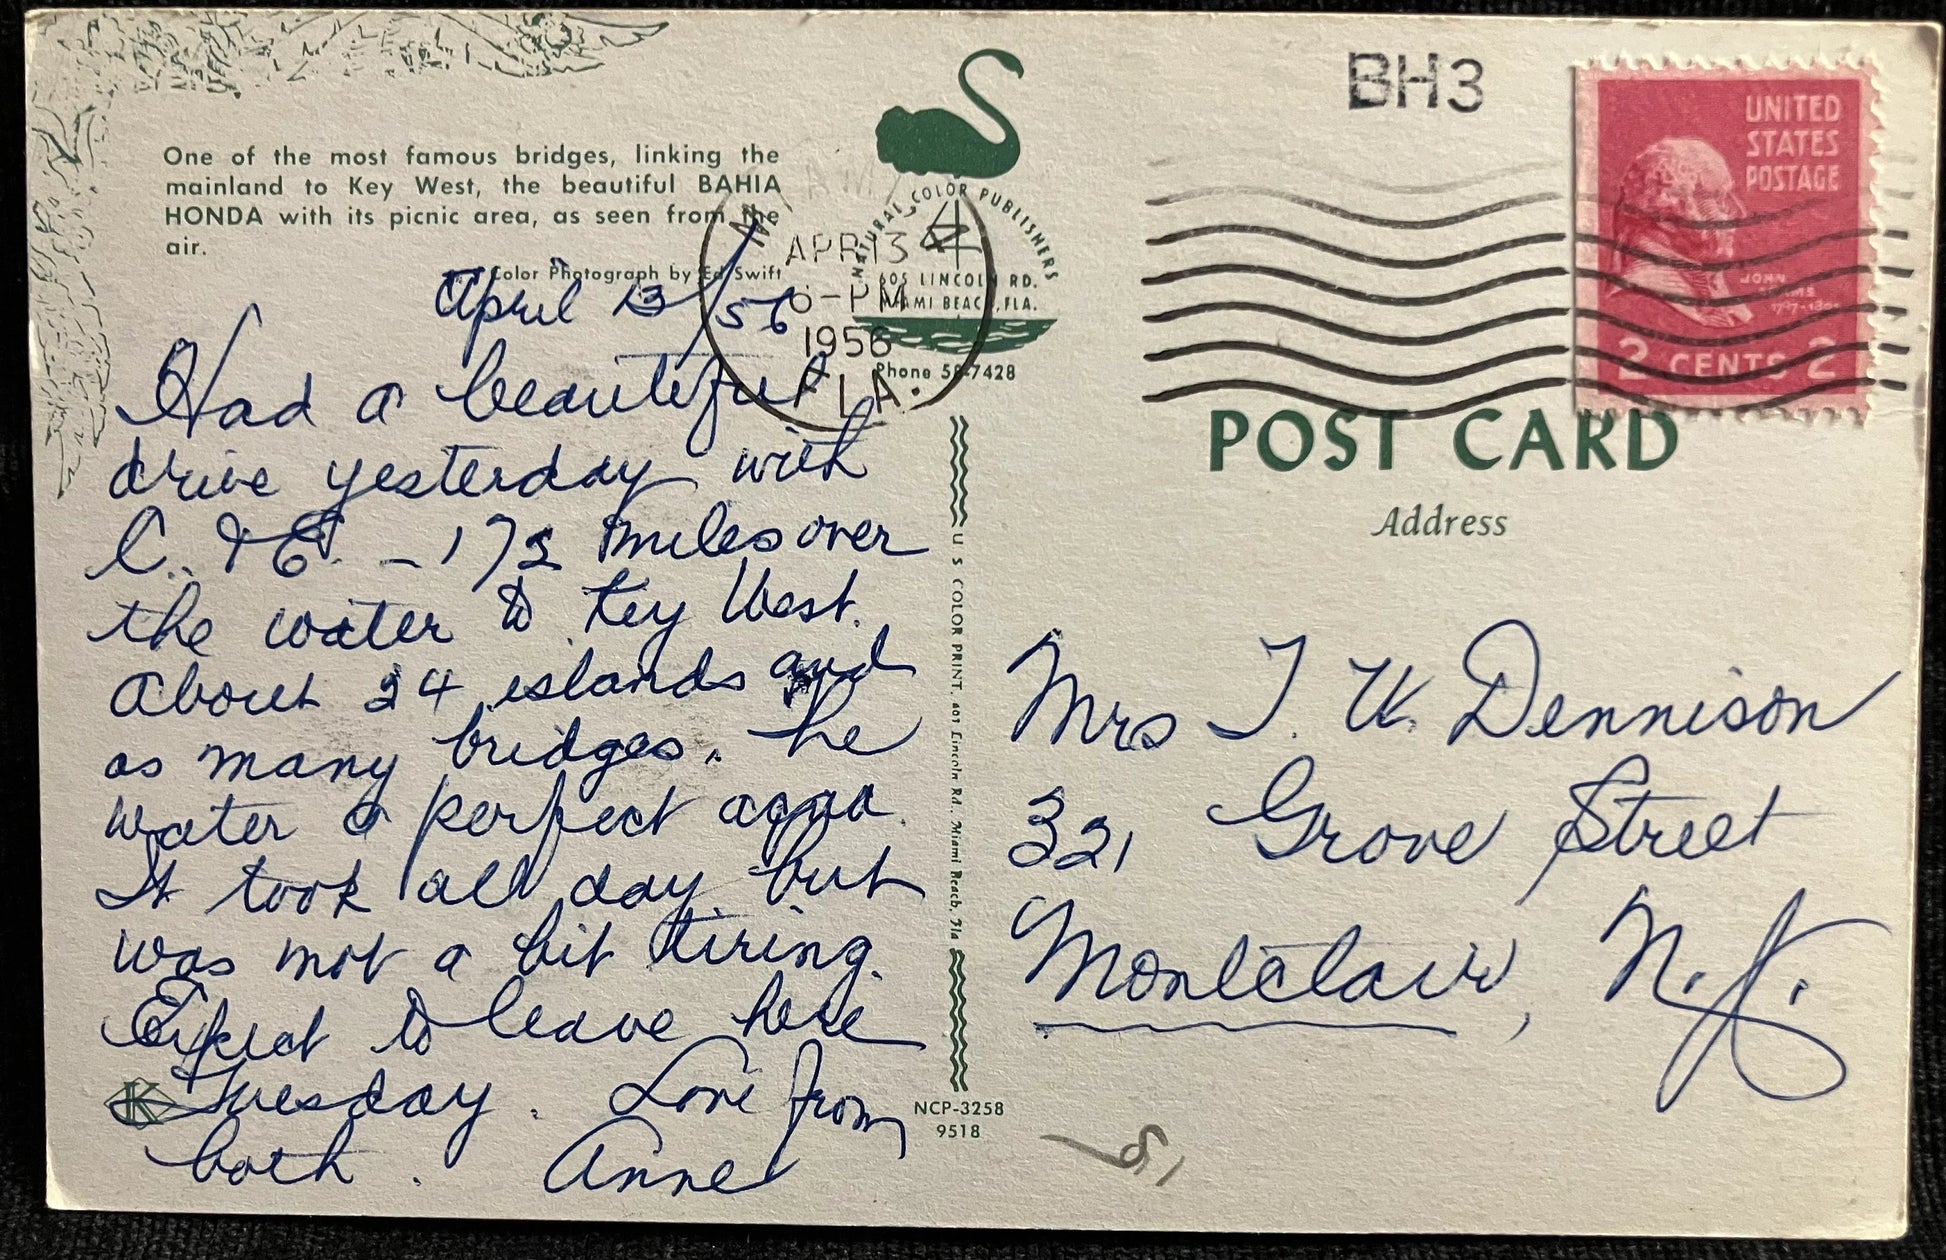 One of the most famous bridges, linking the
mainland to Key West, the beautiful BAHIA
HONDA with its picnic area, as seen from the
air.
Color Photograph by Ed Swift
April 13/56
Had a beautiful
drive yesterday with
C. & E. – 172 miles over
the water to Key West.
About 34 islands and
as many bridges. The
water a perfect aqua.
It took all day but
was not a bit tiring.
Expect to leave here
Tuesday. Love from
both. Anne
K
NATURAL COLOR PUBLISHERS
605 LINCOLN RD.
MIAMI BEACH, FLA.
Phone 58-7428
APR 13
6-PM
1956
FLA.
U S COLOR PRINT, 407 Lincoln Rd, Miami Beach, Fla
NCP-3258
9518
BH3
UNITED
STATES
POSTAGE
JOHN
ADAMS
1797-1801
2 CENTS 2
POST CARD
Address
Mrs T. W. Dennison
321 Grove Street
Montclair, N.J.